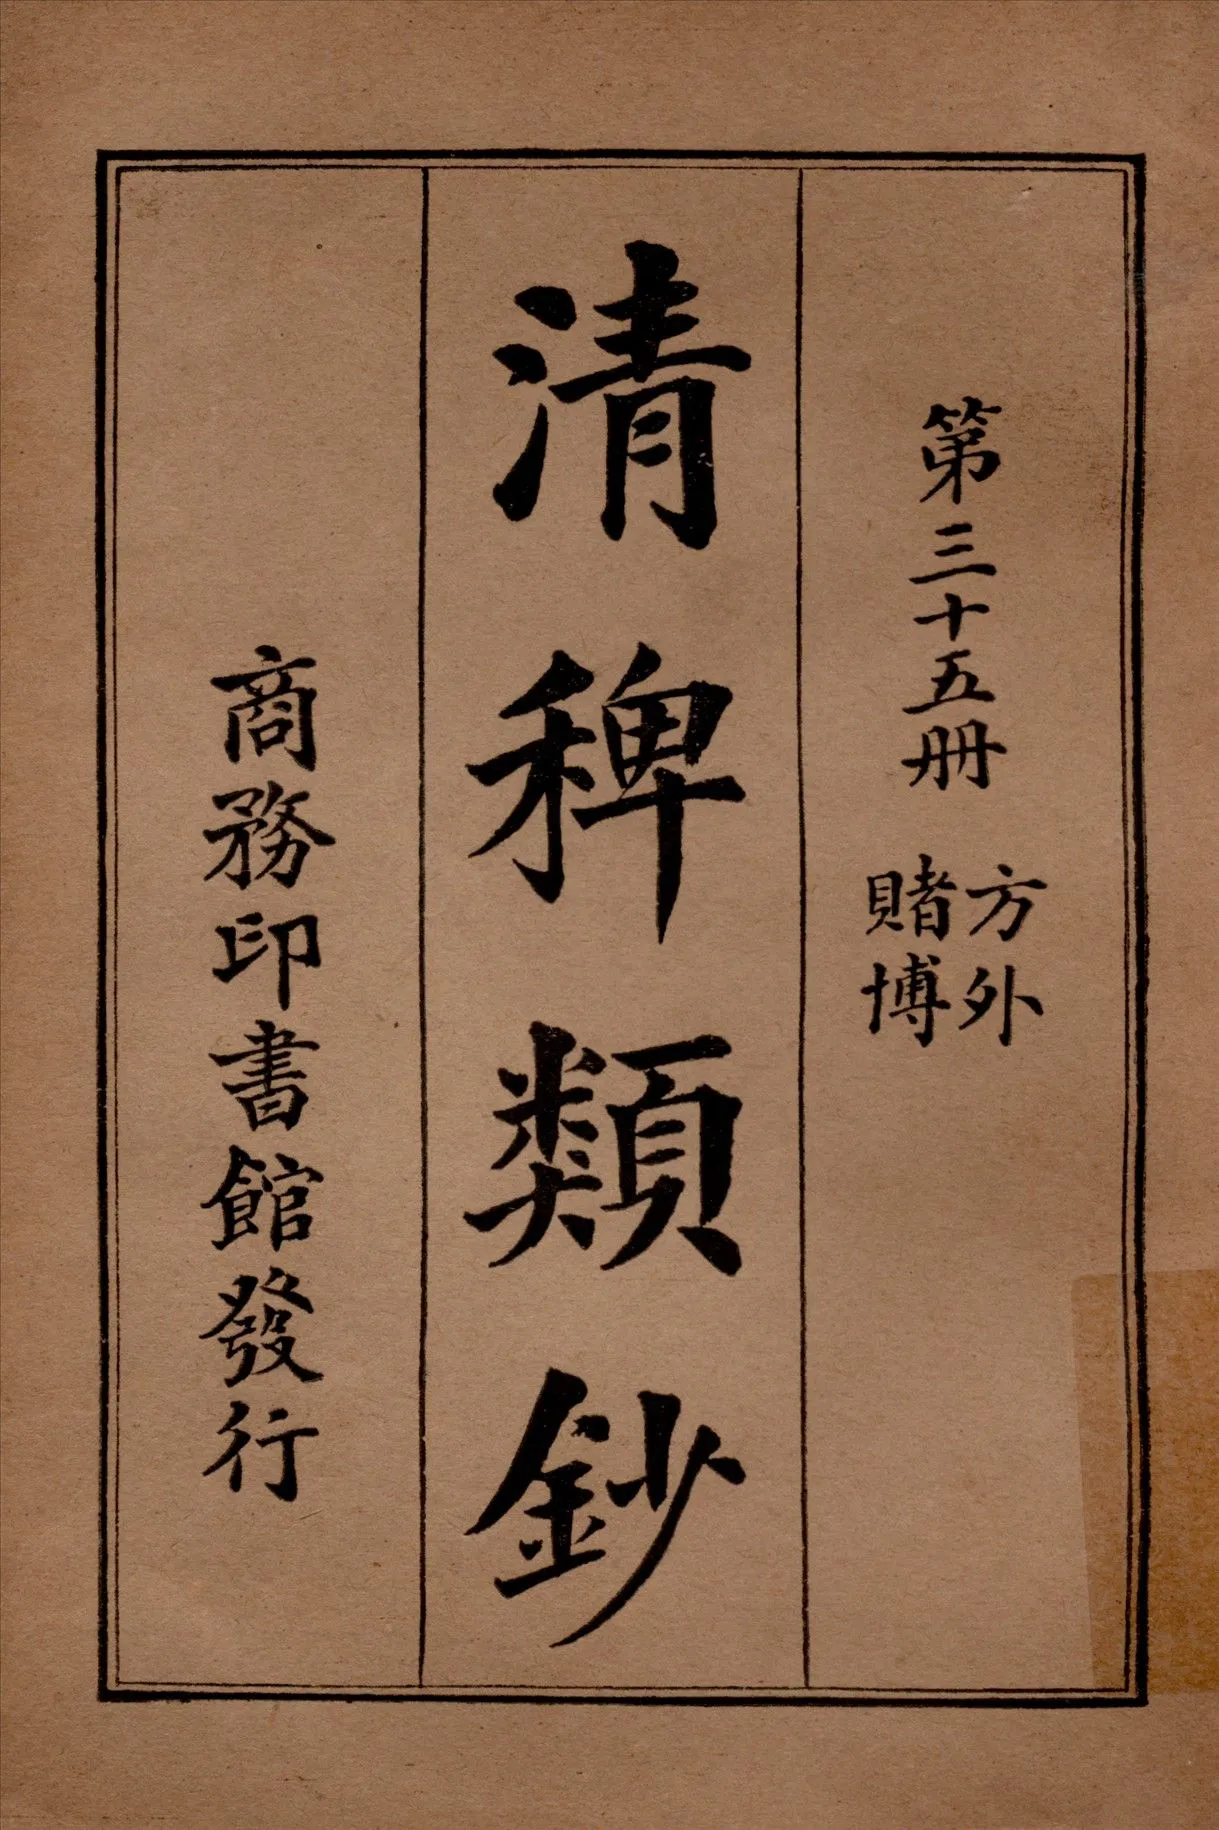 第三十五册
方外
賭博
清稗類鈔
商務印書館發行